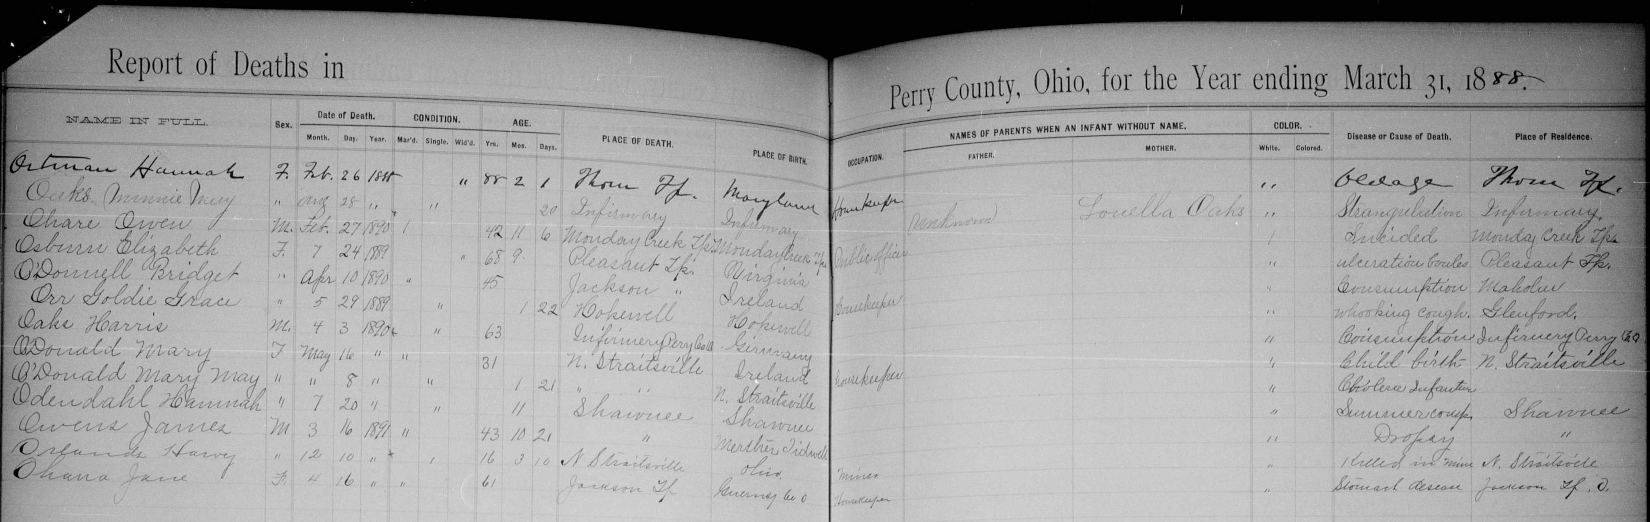 Report of Deaths in Perry County, Ohio, for the Year ending March 31, 1888.
NAME IN FULL. Sex. Date of Death. CONDITION. AGE. PLACE OF DEATH. PLACE OF BIRTH. OCCUPATION. NAMES OF PARENTS WHEN AN INFANT WITHOUT NAME. COLOR. Disease or Cause of Death. Place of Residence.
Month. Day. Year. Mar'd. Single. Wid'd. Yrs. Mos. Days. FATHER. MOTHER. White. Colored.
Ortman Hannah F. Feb. 26 1888 " 88 2 1 Thorn Tp. Maryland Housekeeper " Old age Thorn Tp.
Oaks Minnie May " Aug 28 " " 20 Infirmary Infirmary Unknown Louella Oaks " Strangulation Infirmary.
Ohare Owen M. Feb. 27 1890 1 42 11 6 Monday Creek Tp. Monday Creek Tp. Public officer 1 Suicided Monday Creek Tp.
Osburn Elizabeth F. 7 24 1889 " 68 9 Pleasant Tp. Virginia " ulceration Pleasant Tp.
O'Donnell Bridget " Apr 10 1890 " 45 Jackson " Ireland Housekeeper " Consumption
Orr Goldie Grace " 5 29 1889 " 1 22 Hopewell Hopewell " whooking cough. Glenford.
Oaks Harris M. 4 3 1890 " 63 Infirmery Perry Co O Germany " Consumption Infirmery Perry Co O
O'Donald Mary F May 16 " " 31 N. Straitsville Ireland Housekeeper " Child birth N. Straitsville
O'Donald Mary May " " 8 " " 1 21 " " N. Straitsville " Cholera Infantum
Odendahl Hannah " 7 20 " " 11 Shawnee Shawnee " Summer comp. Shawnee
Owens James M 3 16 1891 " 43 10 21 " " Dropsy "
Orlando Harvy " 12 10 " 16 3 10 N Straitsville Ohio. Miner " Killed in mine N. Straitsville
Ohara Jane F. 4 16 " " 61 Jackson Tp Guernsy Co O Housekeeper " Stomach desease Jackson Tp. O.